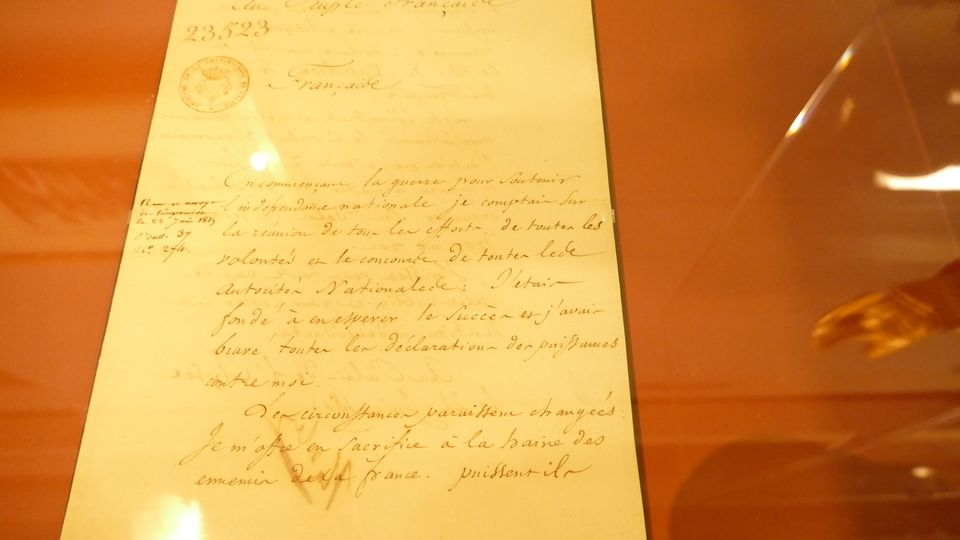 Au Peuple Française
23523
Française
En commençant la guerre pour soutenir
l'indépendance nationale, je comptais sur
la réunion de tous les efforts, de toutes les
volontés et le concours de toutes les
autorités Nationales : J'étais
fondé à en espérer le succès et j'avais
bravé toutes les déclarations des puissances
contre moi.
Des circonstances paraissent changées :
Je m'offre en sacrifice à la haine des
ennemis de la france. puissent ils
le 22 Juin 1815
Bull. 37
No. 274.